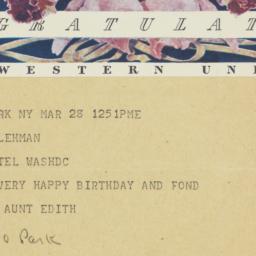 GRATULAT
WESTERN UNI
RK NY MAR 28 1251PME
LEHMAN
TEL WASHDC
VERY HAPPY BIRTHDAY AND FOND
AUNT EDITH
Park